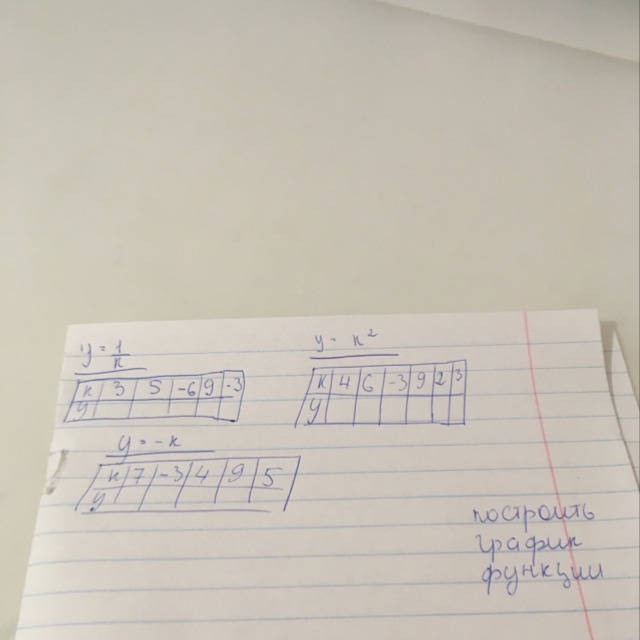 y = 1/x
x 3 5 -6 9 -3
y
y = x²
x 4 6 -3 9 2 3
y
y = -x
x 7 -3 4 9 5
y
построить
график
функции